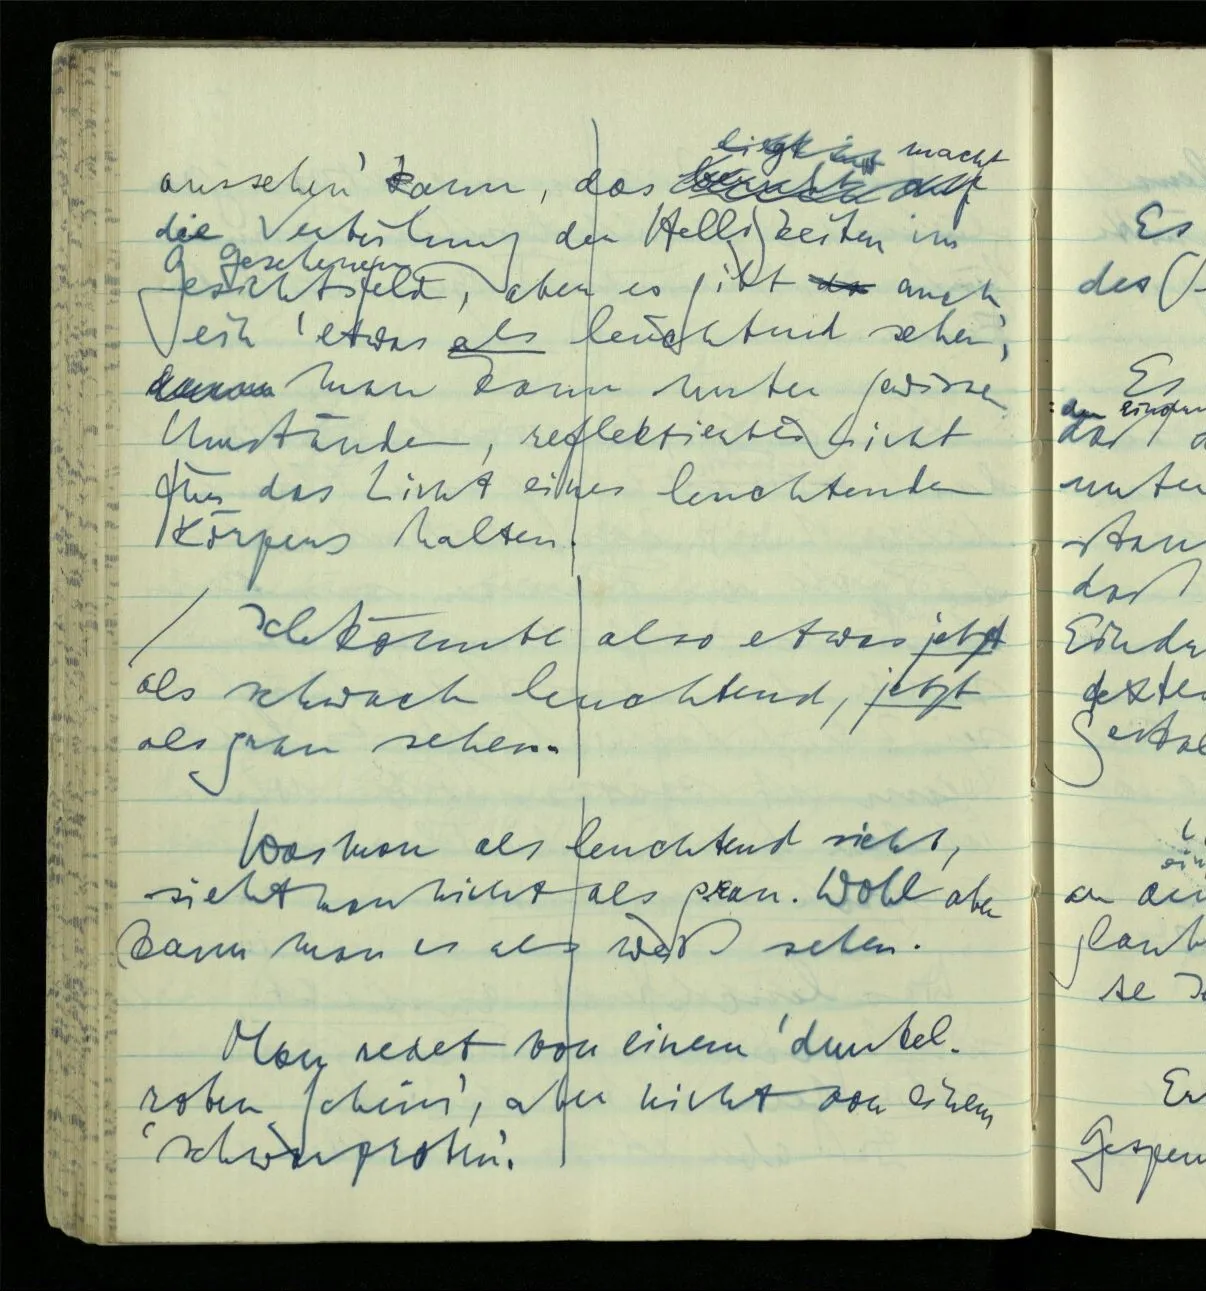 liegt in macht
aussehen' kann, das beruht auf
die Verteilung der Helligkeiten im
Gesehenen
Gesichtsfeld, aber es gibt da auch
ein 'etwas als leuchtend sehen',
denn man kann unter gewissen
Umständen, reflektiertes Licht
für das Licht eines leuchtenden
Körpers halten.
/ Ich könnte also etwas jetzt
als schwach leuchtend, jetzt
als grau sehen.
Was man als leuchtend sieht,
sieht man nicht als grau. Wohl aber
kann man es als weiß sehen.
Man redet von einem 'dunkel-
roten Schein', aber nicht von einem
'schwarzroten'.
Es
des
Es
daß
unter
daß
an
Er